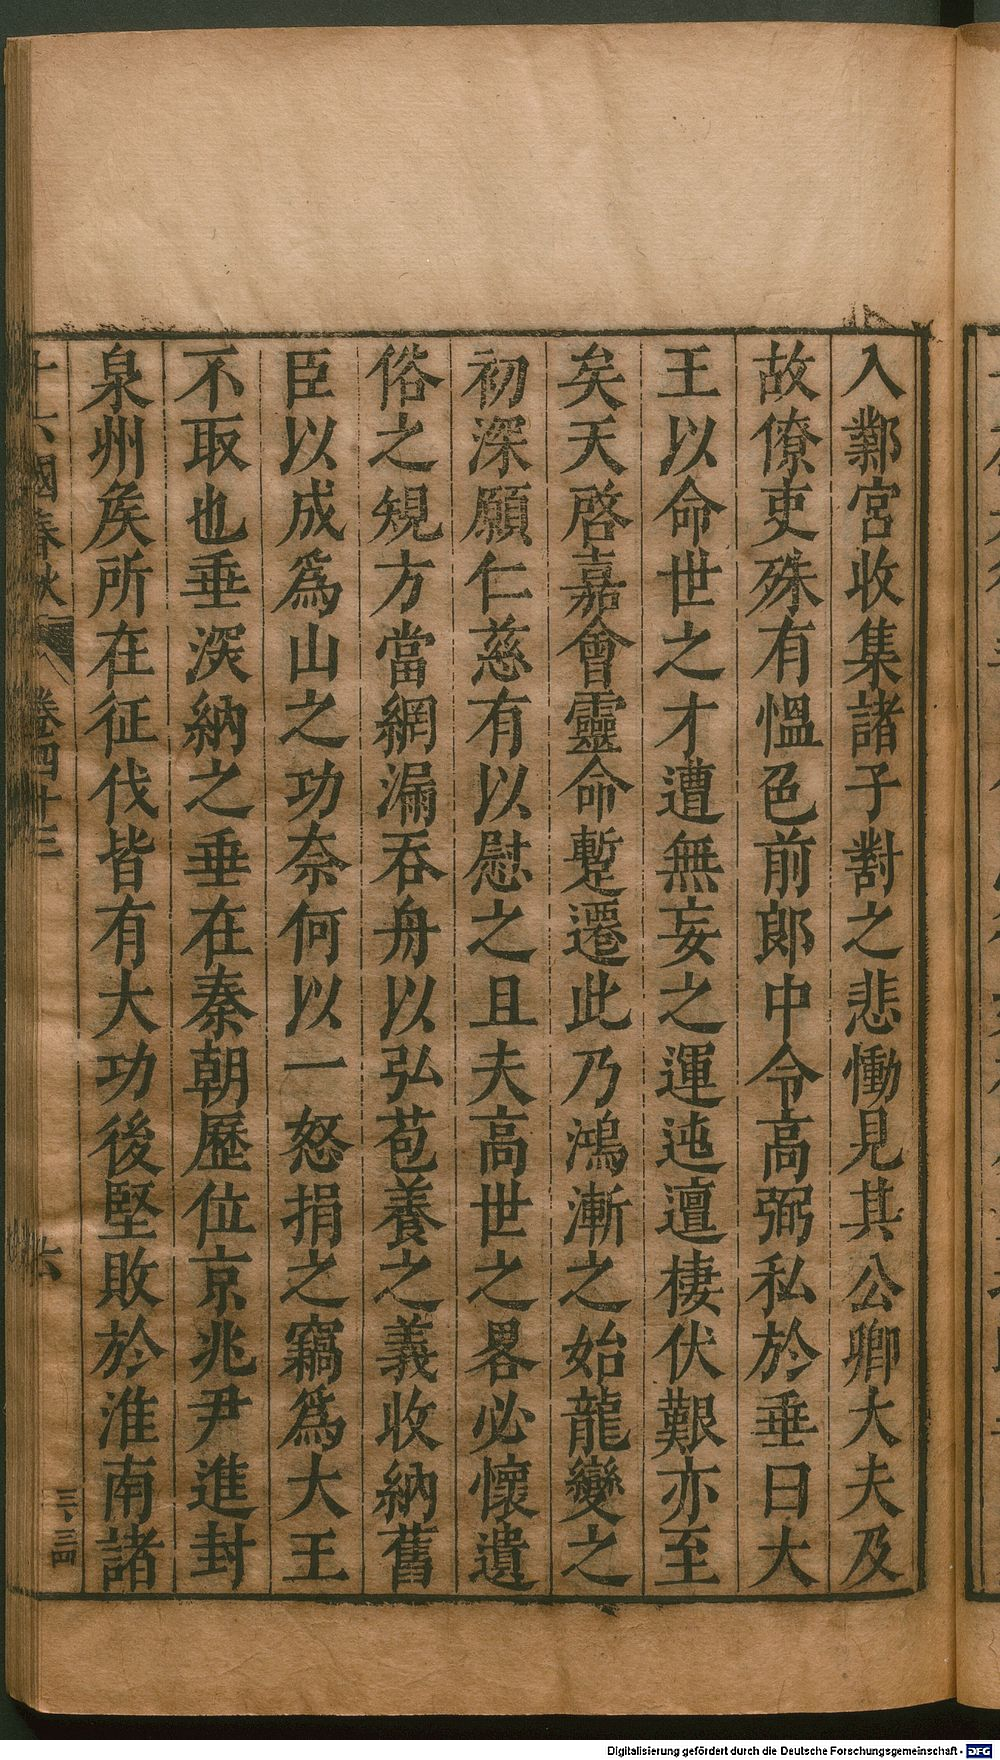 入鄴宮收集諸子對之悲慟見其公卿大夫及
故僚吏殊有慍色前郎中令高弼私於垂曰大
王以命世之才遭無妄之運迍邅棲伏艱亦至
矣天啓嘉會靈命蹔遷此乃鴻漸之始龍變之
初深願仁慈有以慰之且夫高世之畧必懷遺
俗之規方當網漏吞舟以弘苞養之義收納舊
臣以成爲山之功奈何以一怒捐之竊爲大王
不取也垂深納之垂在秦朝歷位京兆尹進封
泉州矦所在征伐皆有大功後堅敗於淮南諸
十六國春秋 卷四十三 六 三、三四
Digitalisierung gefördert durch die Deutsche Forschungsgemeinschaft - DFG